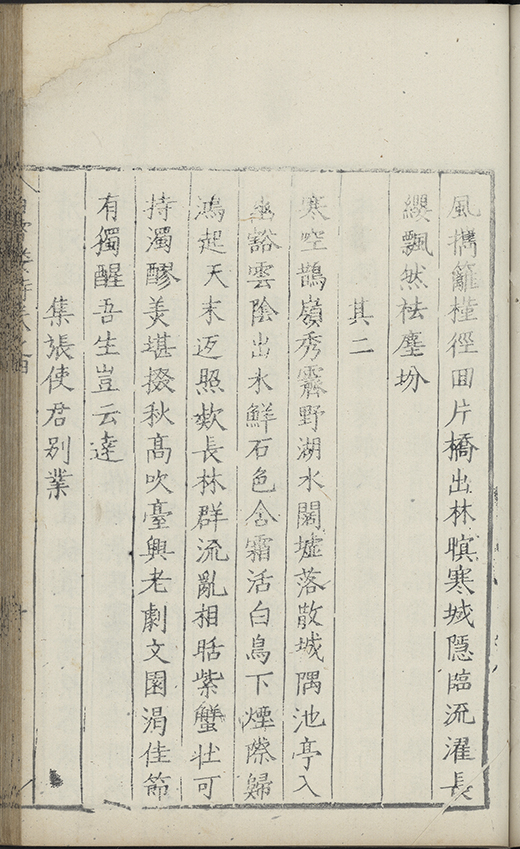 風携籬槿徑回片橋出林暝寒城隱臨流濯長
纓飄然袪塵坋
其二
寒空鵲嶺秀霽野湖水闊墟落散城隅池亭入
幽豁雲陰出氷鮮石色含霜活白鳥下煙際歸
鴻起天末返照欻長林群流亂相聒紫蟹壯可
持濁醪羙堪掇秋髙吹臺興老劇文園渴佳節
有獨醒吾生豈云達
集張使君别業